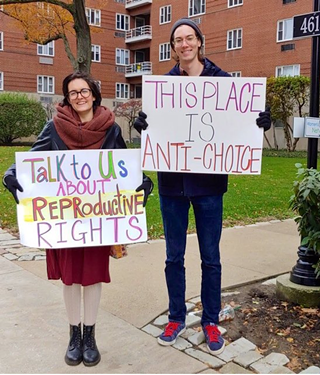 TALK TO US
ABOUT
REPRODUCTIVE
RIGHTS
THIS PLACE
IS
ANTI-CHOICE
461